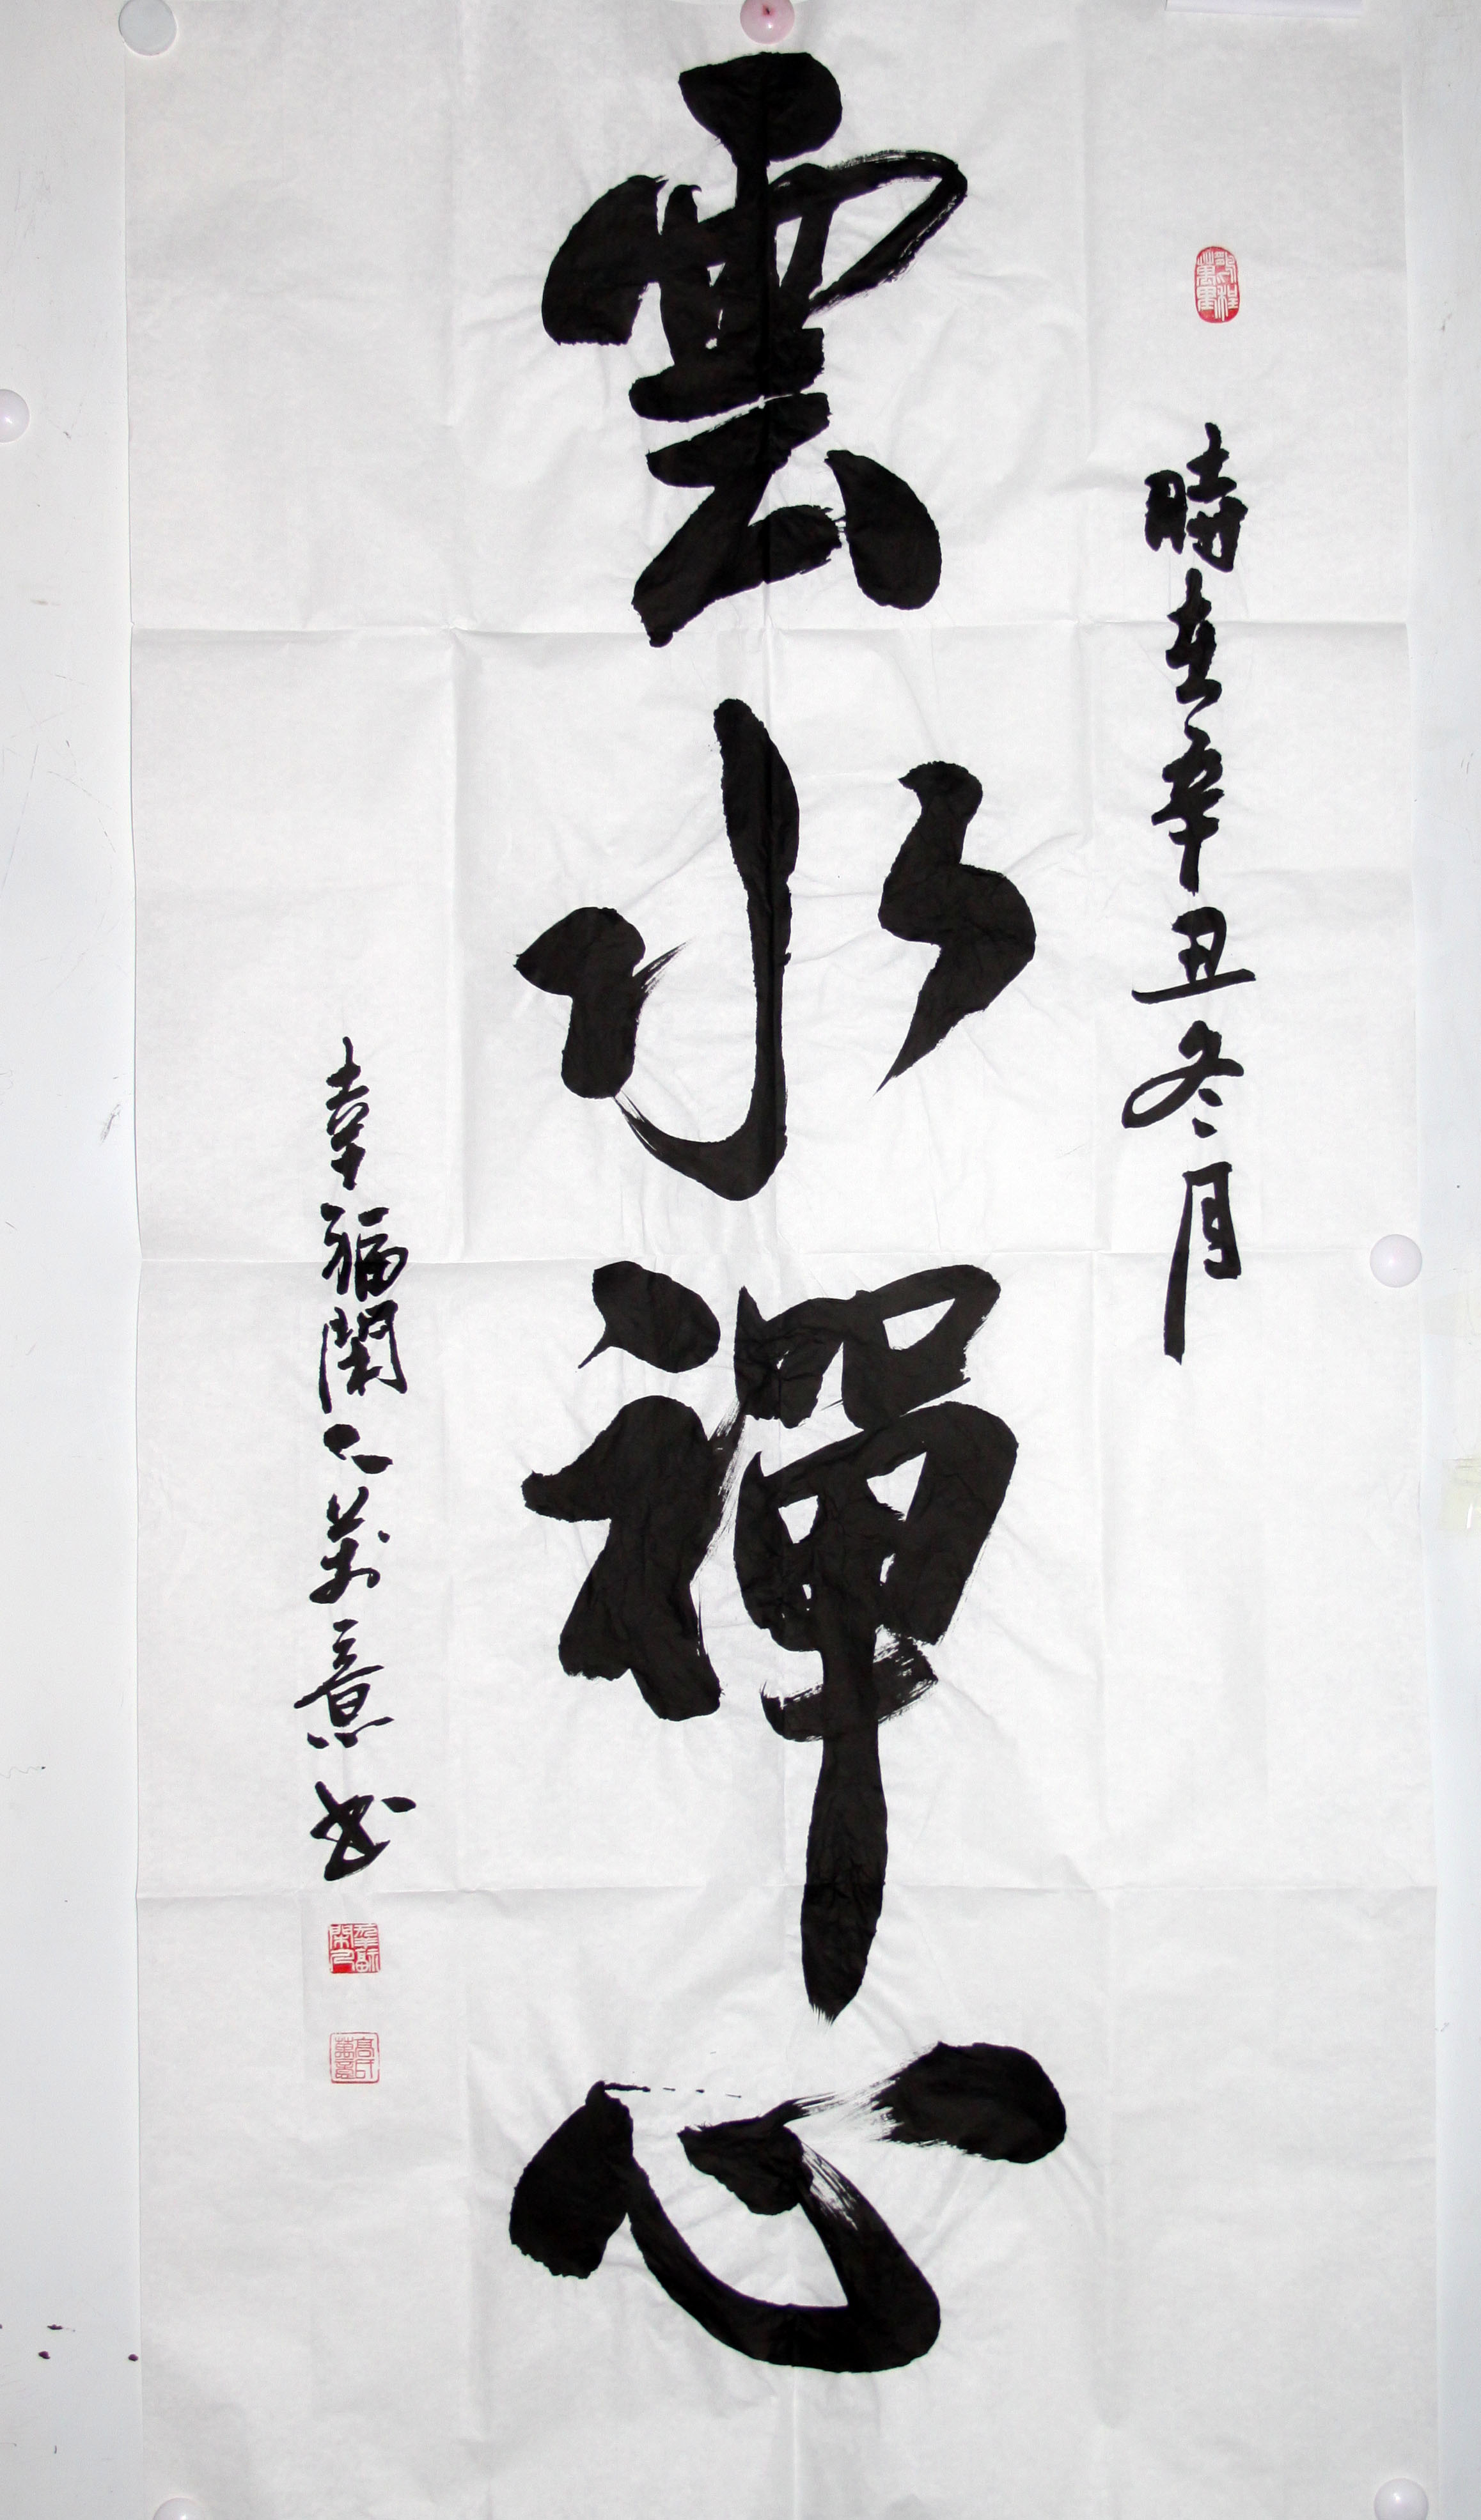 時在辛丑冬月
雲水禪心
幸福閑人萬意書